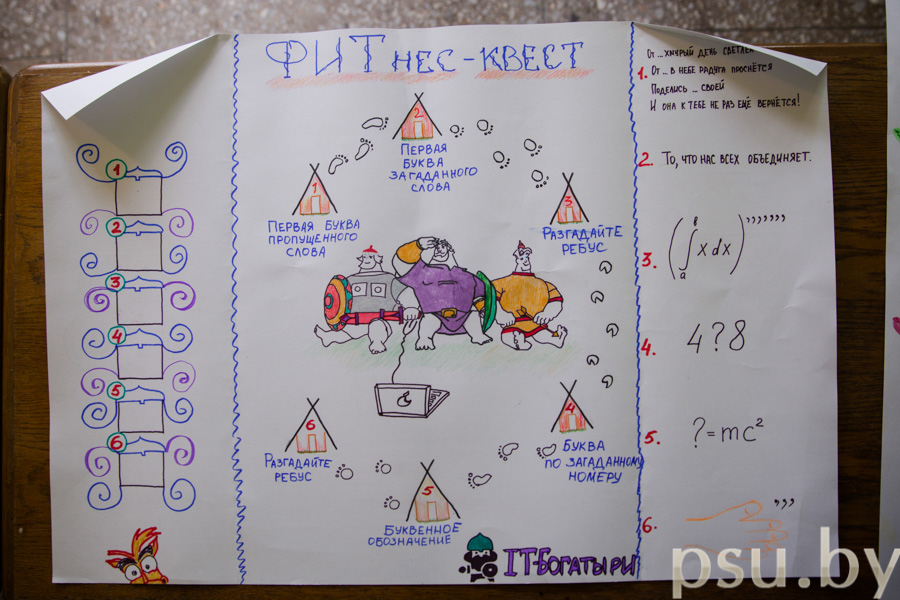 ФИТнес-квест
1
2
3
4
5
6
1
Первая буква
пропущенного
слова
2
Первая
буква
загаданного
слова
3
Разгадайте
ребус
4
Буква
по загаданному
номеру
5
Буквенное
обозначение
6
Разгадайте
ребус
IT-Богатыри
От ... хмурый день светлей
1. От ... в небе радуга проснётся
Поделись ... своей
И она к тебе не раз ещё вернётся!
2. То, что нас всех объединяет.
3. (∫ₐᵇ x dx) ,,,,,,,
4. 4?8
5. ?=mc²
6. ,,,
psu.by